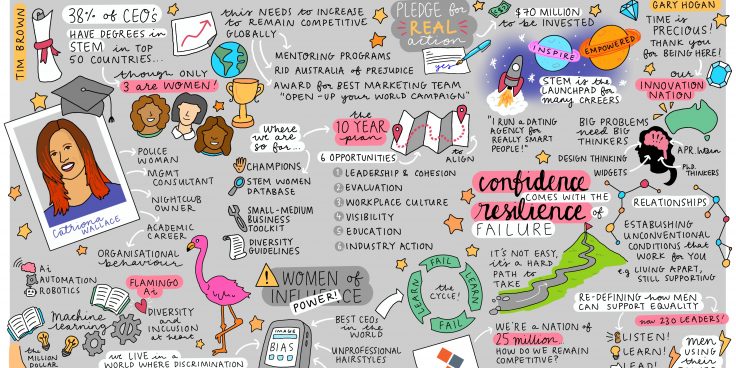 TIM BROWN
38% of CEO's
HAVE DEGREES in
STEM in TOP
50 COUNTRIES...
though ONLY
3 are WOMEN!
this NEEDS to INCREASE
to REMAIN COMPETITIVE
GLOBALLY
MENTORING PROGRAMS
RID AUSTRALIA of PREJUDICE
AWARD for BEST MARKETING TEAM
"OPEN-UP your WORLD CAMPAIGN"
PLEDGE for
REAL
action
yes
$70 MILLION
to BE INVESTED
INSPIRE
EMPOWERED
STEM is the
LAUNCHPAD for
many CAREERS
GARY HOGAN
TIME is
PRECIOUS!
THANK you
for BEING HERE!
our
INNOVATION
NATION
Catriona
WALLACE
POLICE
WOMAN
MGMT
CONSULTANT
NIGHTCLUB
OWNER
ACADEMIC
CAREER
ORGANISATIONAL
behaviour
Where
we are
so far...
CHAMPIONS
STEM WOMEN
DATABASE
SMALL-MEDIUM
BUSINESS
TOOLKIT
DIVERSITY
GUIDELINES
the
10 YEAR
plan
to
ALIGN
6 OPPORTUNITIES
1 LEADERSHIP & COHESION
2 EVALUATION
3 WORKPLACE CULTURE
4 VISIBILITY
5 EDUCATION
6 INDUSTRY ACTION
"I RUN a DATING
AGENCY for
REALLY SMART
PEOPLE!"
BIG PROBLEMS
need BIG
THINKERS
DESIGN THINKING
WIDGETS
Ph.D.
THINKERS
confidence
COMES WITH THE
resilience of
FAILURE
RELATIONSHIPS
ESTABUSHING
UNCONVENTIONAL
CONDITIONS that
WORK for YOU
e.g LIVING APART,
STILL SUPPORTING
IT'S NOT EASY,
it's a HARD
PATH to
TAKE
Ai
AUTOMATION
ROBOTICS
FLAMINGO
Ai
Machine
learning
DIVERSITY
and
INCLUSION
at heart
the
MILLION
DOLLAR
WE LIVE in a
WORLD WHERE DISCRIMINATION
WOMEN of
INFLUENCE
POWER!
IMAGE
BIAS
BEST CEOs
in the
WORLD
UNPROFESSIONAL
HAIRSTYLES
FAIL
LEARN
FAIL
LEARN
the
CYCLE!
WE'RE a NATION of
25 million.
HOW DO WE REMAIN
COMPETITIVE?
RE-DEFINING how MEN
CAN SUPPORT EQUALITY
now 230 LEADERS!
LISTEN!
LEARN!
LEAD!
men
USING
their